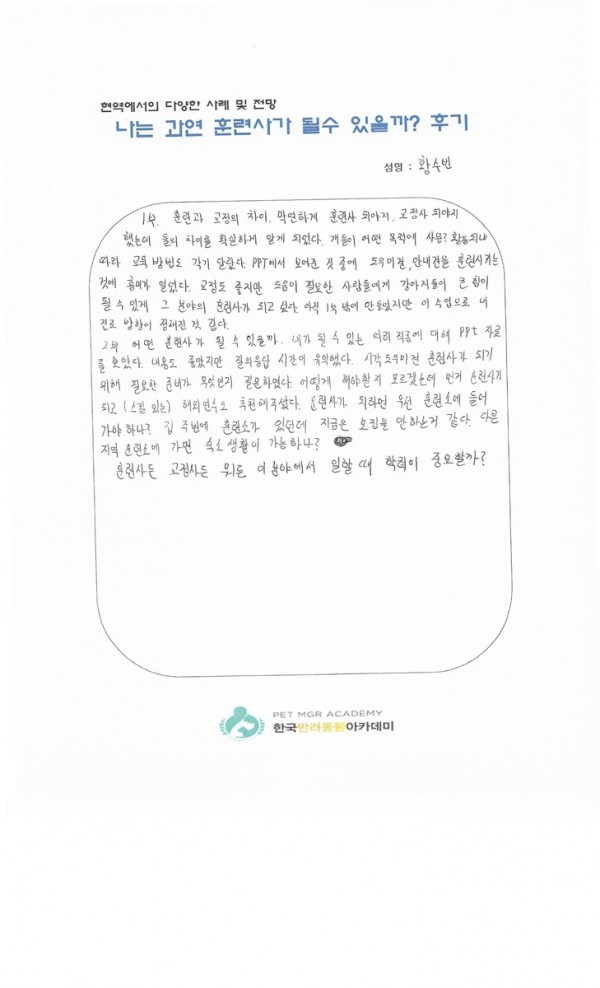 현역에서의 다양한 사례 및 전망
나는 과연 훈련사가 될수 있을까? 후기
성명 : 황수빈
1부. 훈련과 교정의 차이. 막연하게 훈련사 되야지. 교정사 되야지
했는데 둘의 차이를 확실하게 알게 되었다. 개들이 어떤 목적에 사용? 활동되냐
따라 교육 방법도 각기 달랐다. PPT에서 보여준 것 중에 도우미견, 안내견을 훈련시키는
것에 흥미가 일었다. 교정도 좋지만 도움이 필요한 사람들에게 강아지들이 큰 힘이
될 수 있게 그 분야의 훈련사가 되고 싶다. 아직 1부 밖에 안들었지만 이 수업으로 내
진로 방향이 정해진 것 같다.
2부 어떤 훈련사가 될 수 있을까. 내가 될 수 있는 여러 직종에 대해 PPT 자료
를 보았다. 내용도 좋았지만 질의응답 시간이 유익했다. 시각도우미견 훈련사가 되기
위해 필요한 준비가 무엇인지 질문하였다. 어떻게 해야할지 모르겠는데 먼저 훈련사가
되고 (스킬 있는) 해외연수도 추천해주셨다. 훈련사가 되려면 우선 훈련소에 들어
가야 하나? 집 주변에 훈련소가 있던데 지금은 모집을 안하는거 같다. 다른
지역 훈련소에 가면 숙소 생활이 가능하나?
훈련사든 교정사든 뭐든 이 분야에서 일할 때 학력이 중요할까?
PET MGR ACADEMY
한국반려동물아카데미